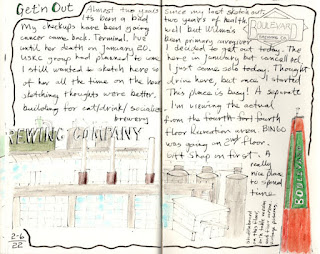 Get'n Out Almost two years
It's been a bad
My checkups have been going
cancer came back. Terminal. I've
until her death on January 20.
USKC group had planned to come
I still wanted to sketch here so
of her all the time on the
sketching thoughts were better.
building for eat/drink/socialize
brewery
BREWING COMPANY
2-6
22
Since my last sketch out
two years of health
well but
been primary caregiver
I decided to get out today. The
here in January but cancelled
I just came solo today. Thought
drive here, but once I started
This place is busy! A separate
I'm viewing the actual
from the fourth
floor Recreation area. BINGO
was going on 2nd floor.
Gift Shop in first
A
really
nice place
to spend
time
BOULEVARD
BREWING CO.
BOULEVARD